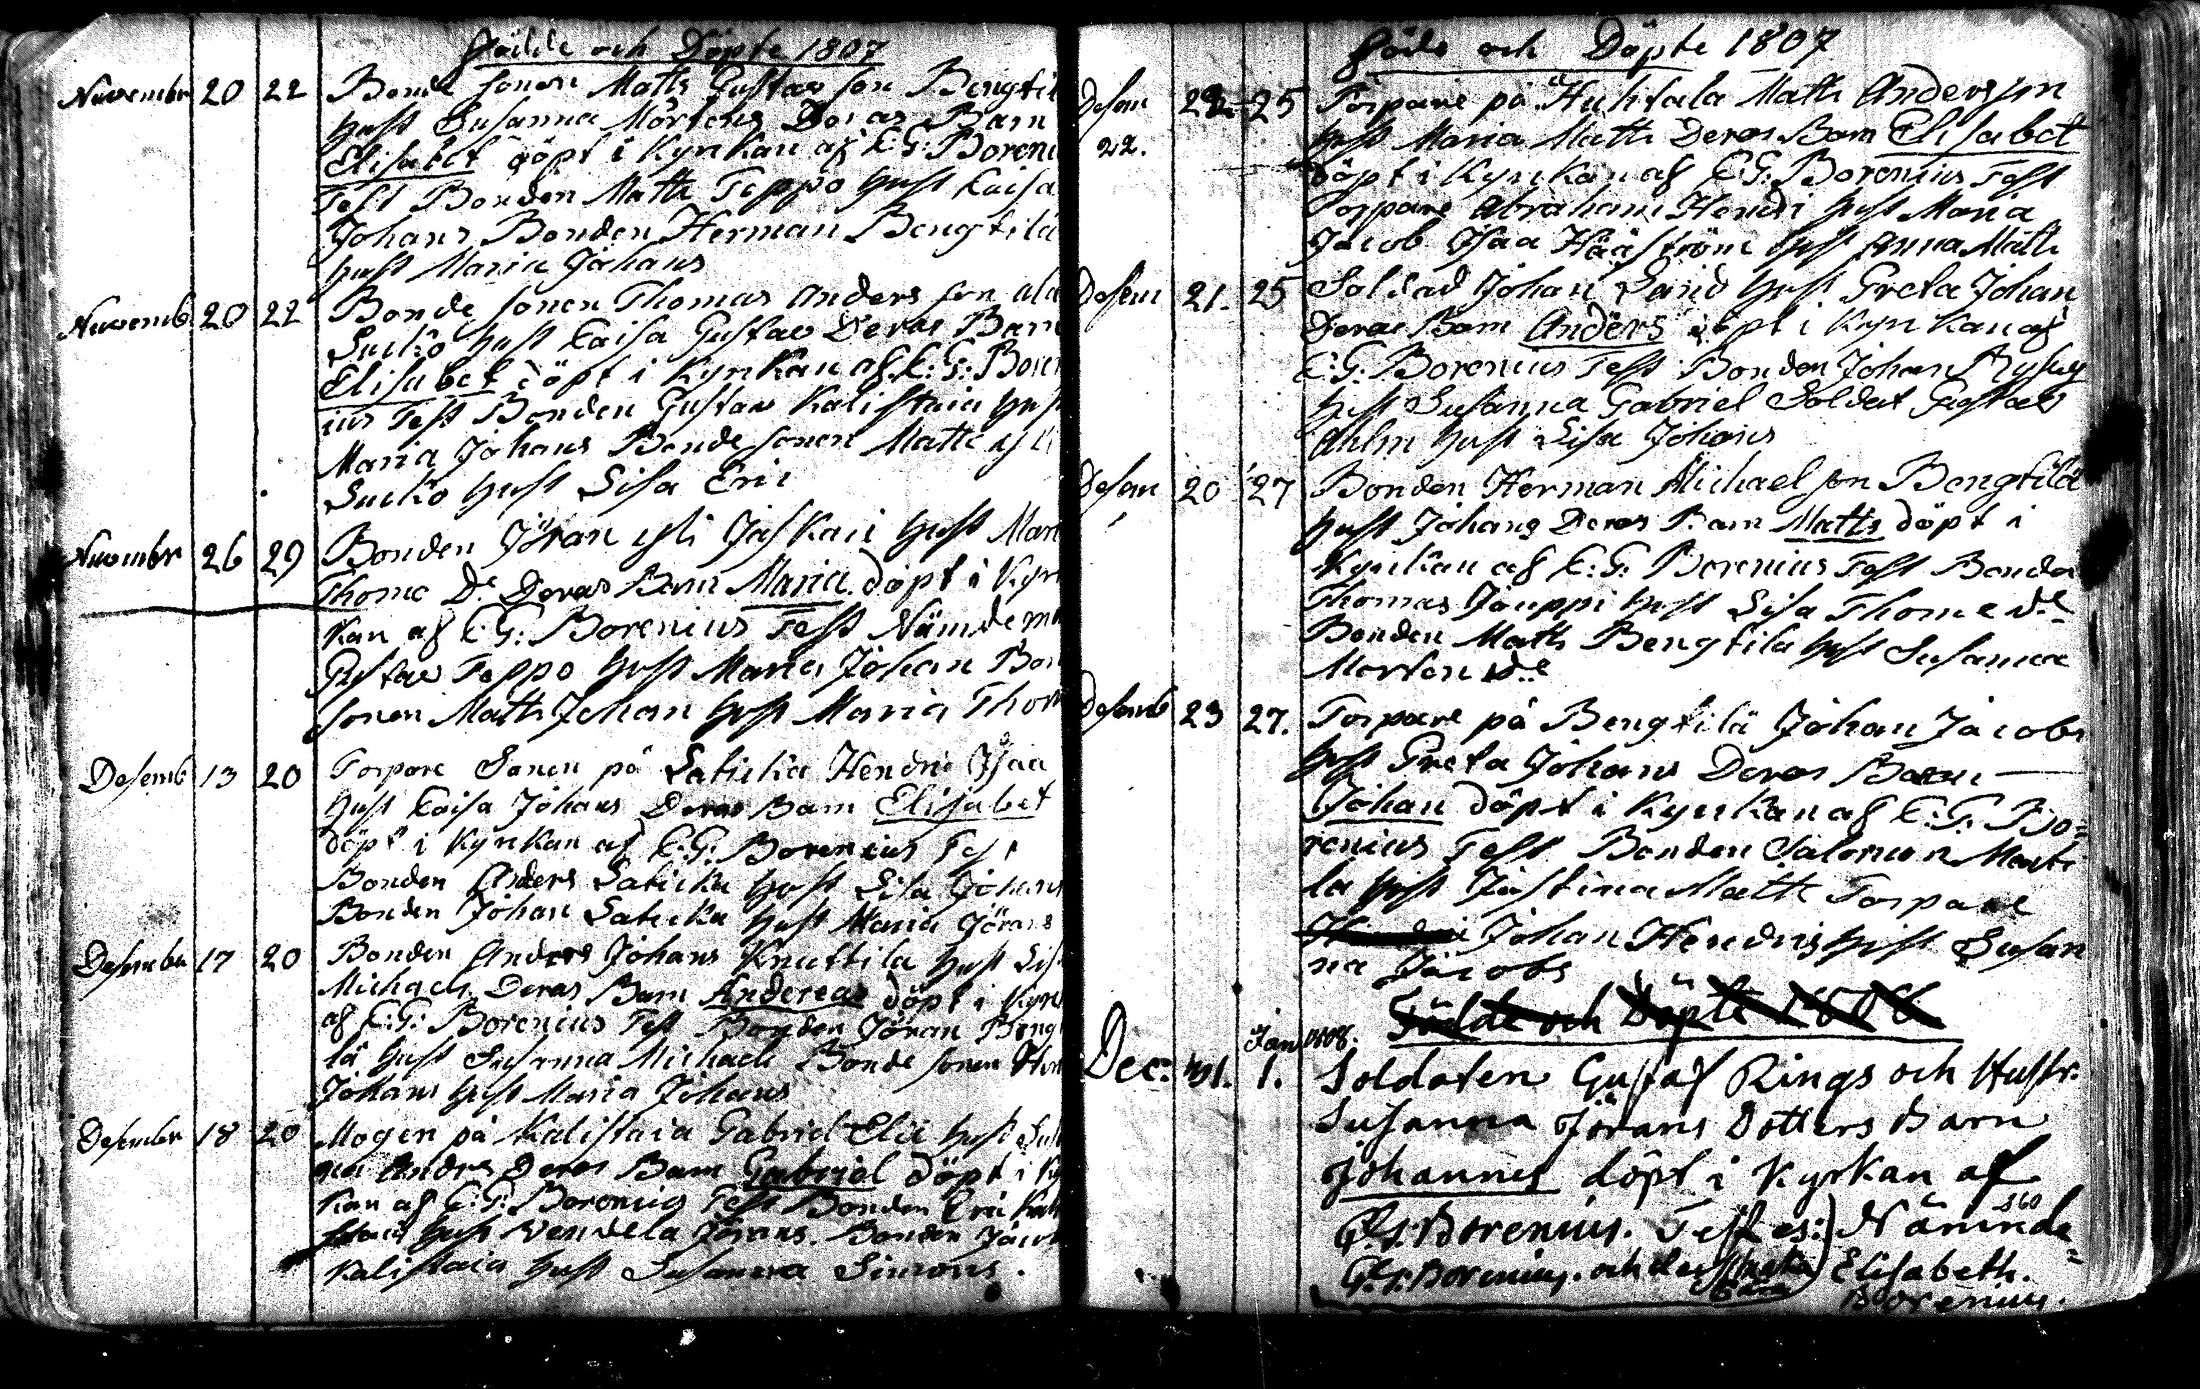 Födde och Döpte 1807
Novembr 20 22 Bonde sonen Matts Gustav son Bengtil
hust Susanna Mortens Deras Barn
Elisabet döpt i Kyrkan af C: G: Boreni
Test Bonden Matts Teppo hust Caisa
Johans Bonden Herman Bengtila
hust Maria Johans
Novemb 20 22 Bonde sonen Thomas Anders son ala
Sucko hust Caisa Gustav Deras Barn
Elisabet döpt i Kyrkan af C: G: Boren
ius Test Bonden Gustav Kalistaia hust
Maria Johans Bonde sonen Matts
Sucko hust Lisa Eric
Novembr 26 29 Bonden Jöran Jaskari hust Mari
Thome De Deras Barn Maria döpt i Kyr
kan af C: G: Borenius Test Nämdem
Gustav Teppo hust Maria Johan Bon
sonen Matts Johan hust Maria Thom
Desemb 13 20 Torpare Sonen på Laticka Hendric Isaa
hust Caisa Johans Deras Barn Elisabet
döpt i Kyrkan af C: G: Borenius Test
Bonden Anders Laticka hust Lisa Johans
Bonden Johan Laticka hust Maria Jörans
Desember 17 20 Bonden Anders Johans Knuttila hust Lis
Michaels Deras Barn Andereas döpt i Kyrk
af C: G: Borenius Test Bonden Jöran Bengt
lä hust Susanna Michaels Bonde sonen
Johans hust Maria Johans
Desember 18 20 Mogen på Kalistaia Gabriel Elie hust Sus
Anders Deras Barn Gabriel döpt i Ky
kan af C: G: Borenius Test Bonden Eric Kali
staia hust Vendela Jörans. Bonden Jacob
Kalistaia hust Susanna Simons.
Födde och Döpte 1807
Desem 22 25 Torpare på Huhtala Matts Andersson
22. hust Maria Matts Deras Barn Elisabet
döpt i Kyrkan af C: G: Borenius Test
Torpare Abraham Hendri hust Maria
Jacob Isaa Hääström hust Anna Matts
Desem 21. 25 Soldad Johan hust Greta Johan
Deras Barn Anders döpt i Kyrkan af
C: G: Borenius Test Bonden Johan Rysky
hust Susanna Gabriel Soldat Gustav
Ahlm hust Lisa Johans
Desem 20 27 Bonden Herman Michael son Bengtilä
hust Johans Deras Barn Matts döpt i
Kyrkan af C: G: Borenius Test Bonden
Thomas Jouppi hust Lisa Thome de
Bonden Matts Bengtila hust Susanna
Morten de
Desemb 23 27. Torpare på Bengtilä Johan Jacobs
hust Greta Johans Deras Barn
Johan döpt i Kyrkan af C: G: Bo=
renius Test Bonden Salomon Marti
la hust Justina Matts Torpare
Johan Hendris hust Susan
na Jacobs
Födde och Döpte 1808
Jan 1808.
Dec: 31. 1. Soldaten Gustaf Rings och Hustr:
Susanna Jörans Dotters Barn
Johannes döpt i Kyrkan af
C. G. Borenius. Testes: Nämnde=
C. G. Borenius. och Elisabeth.
Borenius.